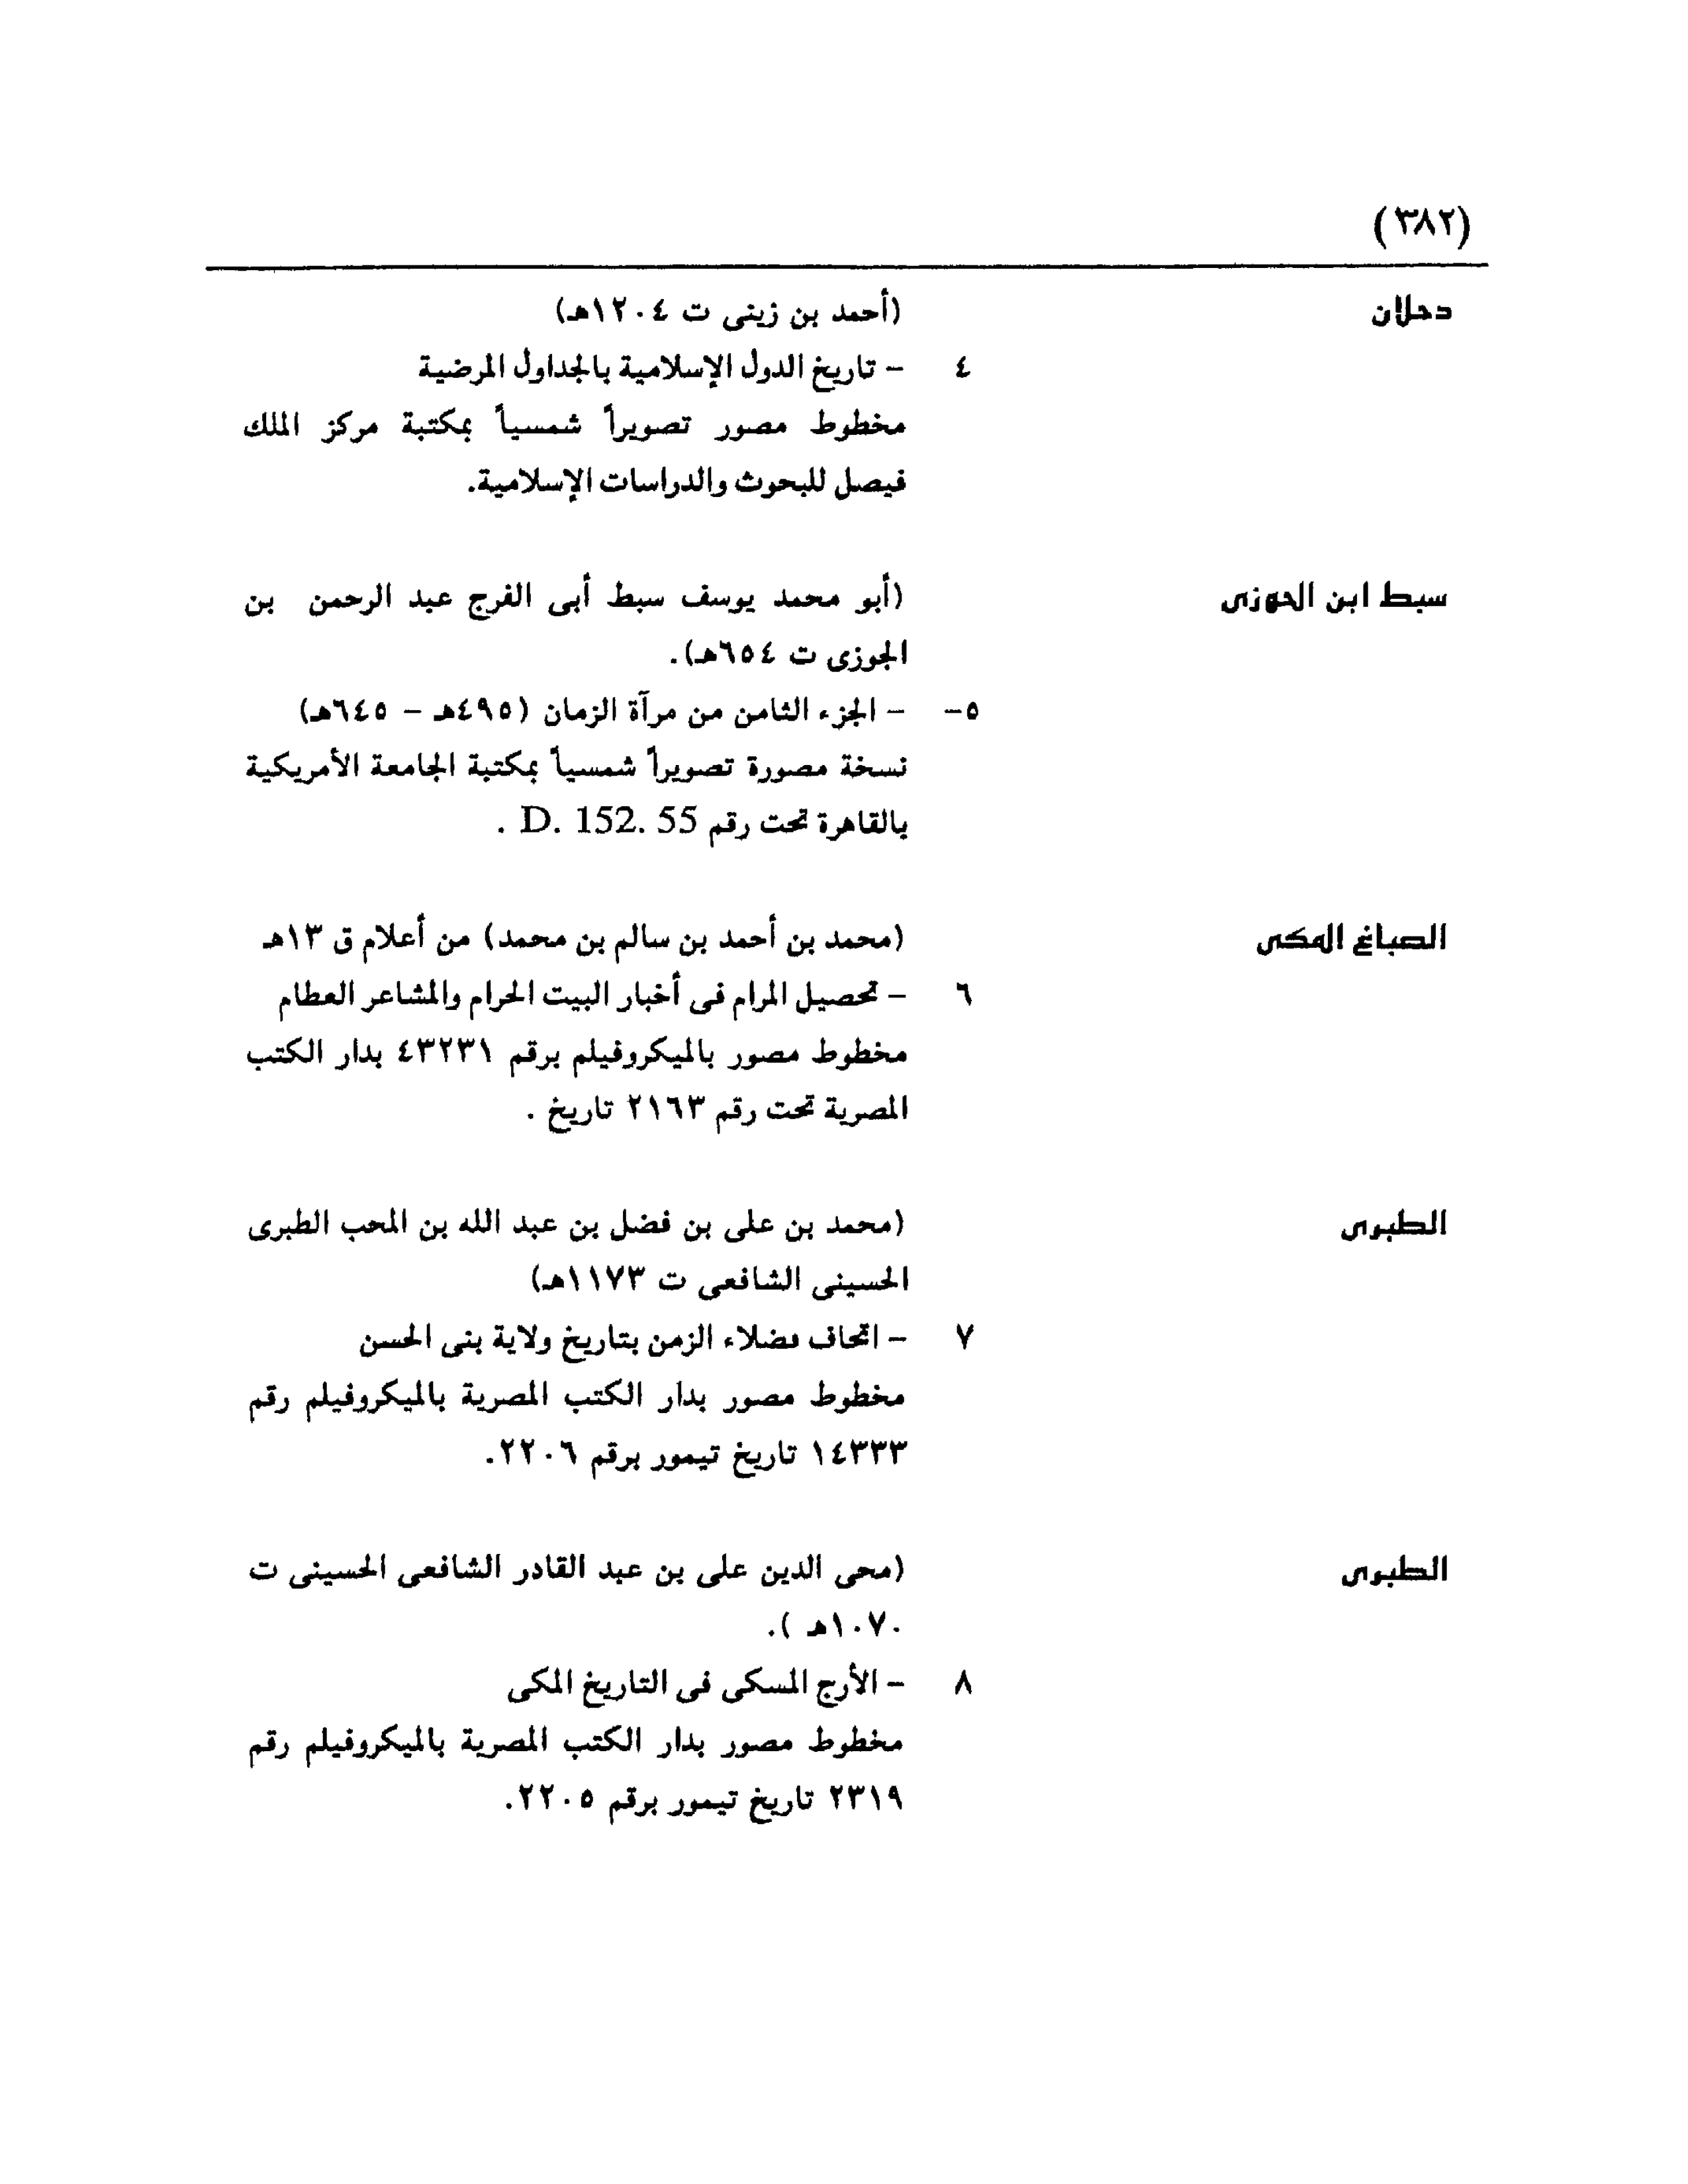 (٣٨٢)
دحلان (أحمد بن زينى ت ١٢٠٤هـ)
٤ - تاريخ الدول الإسلامية بالجداول المرضية
مخطوط مصور تصويراً شمسياً بمكتبة مركز الملك
فيصل للبحوث والدراسات الإسلامية.
سبط ابن الجوزى (أبو محمد يوسف سبط أبى الفرج عبد الرحمن بن
الجوزى ت ٦٥٤هـ).
٥- - الجزء الثامن من مرآة الزمان (٤٩٥هـ - ٦٤٥هـ)
نسخة مصورة تصويراً شمسياً بمكتبة الجامعة الأمريكية
بالقاهرة تحت رقم D. 152. 55 .
الصباغ المكى (محمد بن أحمد بن سالم بن محمد) من أعلام ق ١٣هـ
٦ - تحصيل المرام فى أخبار البيت الحرام والمشاعر العطام
مخطوط مصور بالميكروفيلم برقم ٤٣٢٣١ بدار الكتب
المصرية تحت رقم ٢١٦٣ تاريخ .
الطبرى (محمد بن على بن فضل بن عبد الله بن المحب الطبرى
الحسينى الشافعى ت ١١٧٣هـ)
٧ - اتحاف فضلاء الزمن بتاريخ ولاية بنى الحسن
مخطوط مصور بدار الكتب المصرية بالميكروفيلم رقم
١٤٣٣٣ تاريخ تيمور برقم ٢٢٠٦.
الطبرى (محى الدين على بن عبد القادر الشافعى الحسينى ت
١٠٧٠هـ ).
٨ - الأرج المسكى فى التاريخ المكى
مخطوط مصور بدار الكتب المصرية بالميكروفيلم رقم
٢٣١٩ تاريخ تيمور برقم ٢٢٠٥.